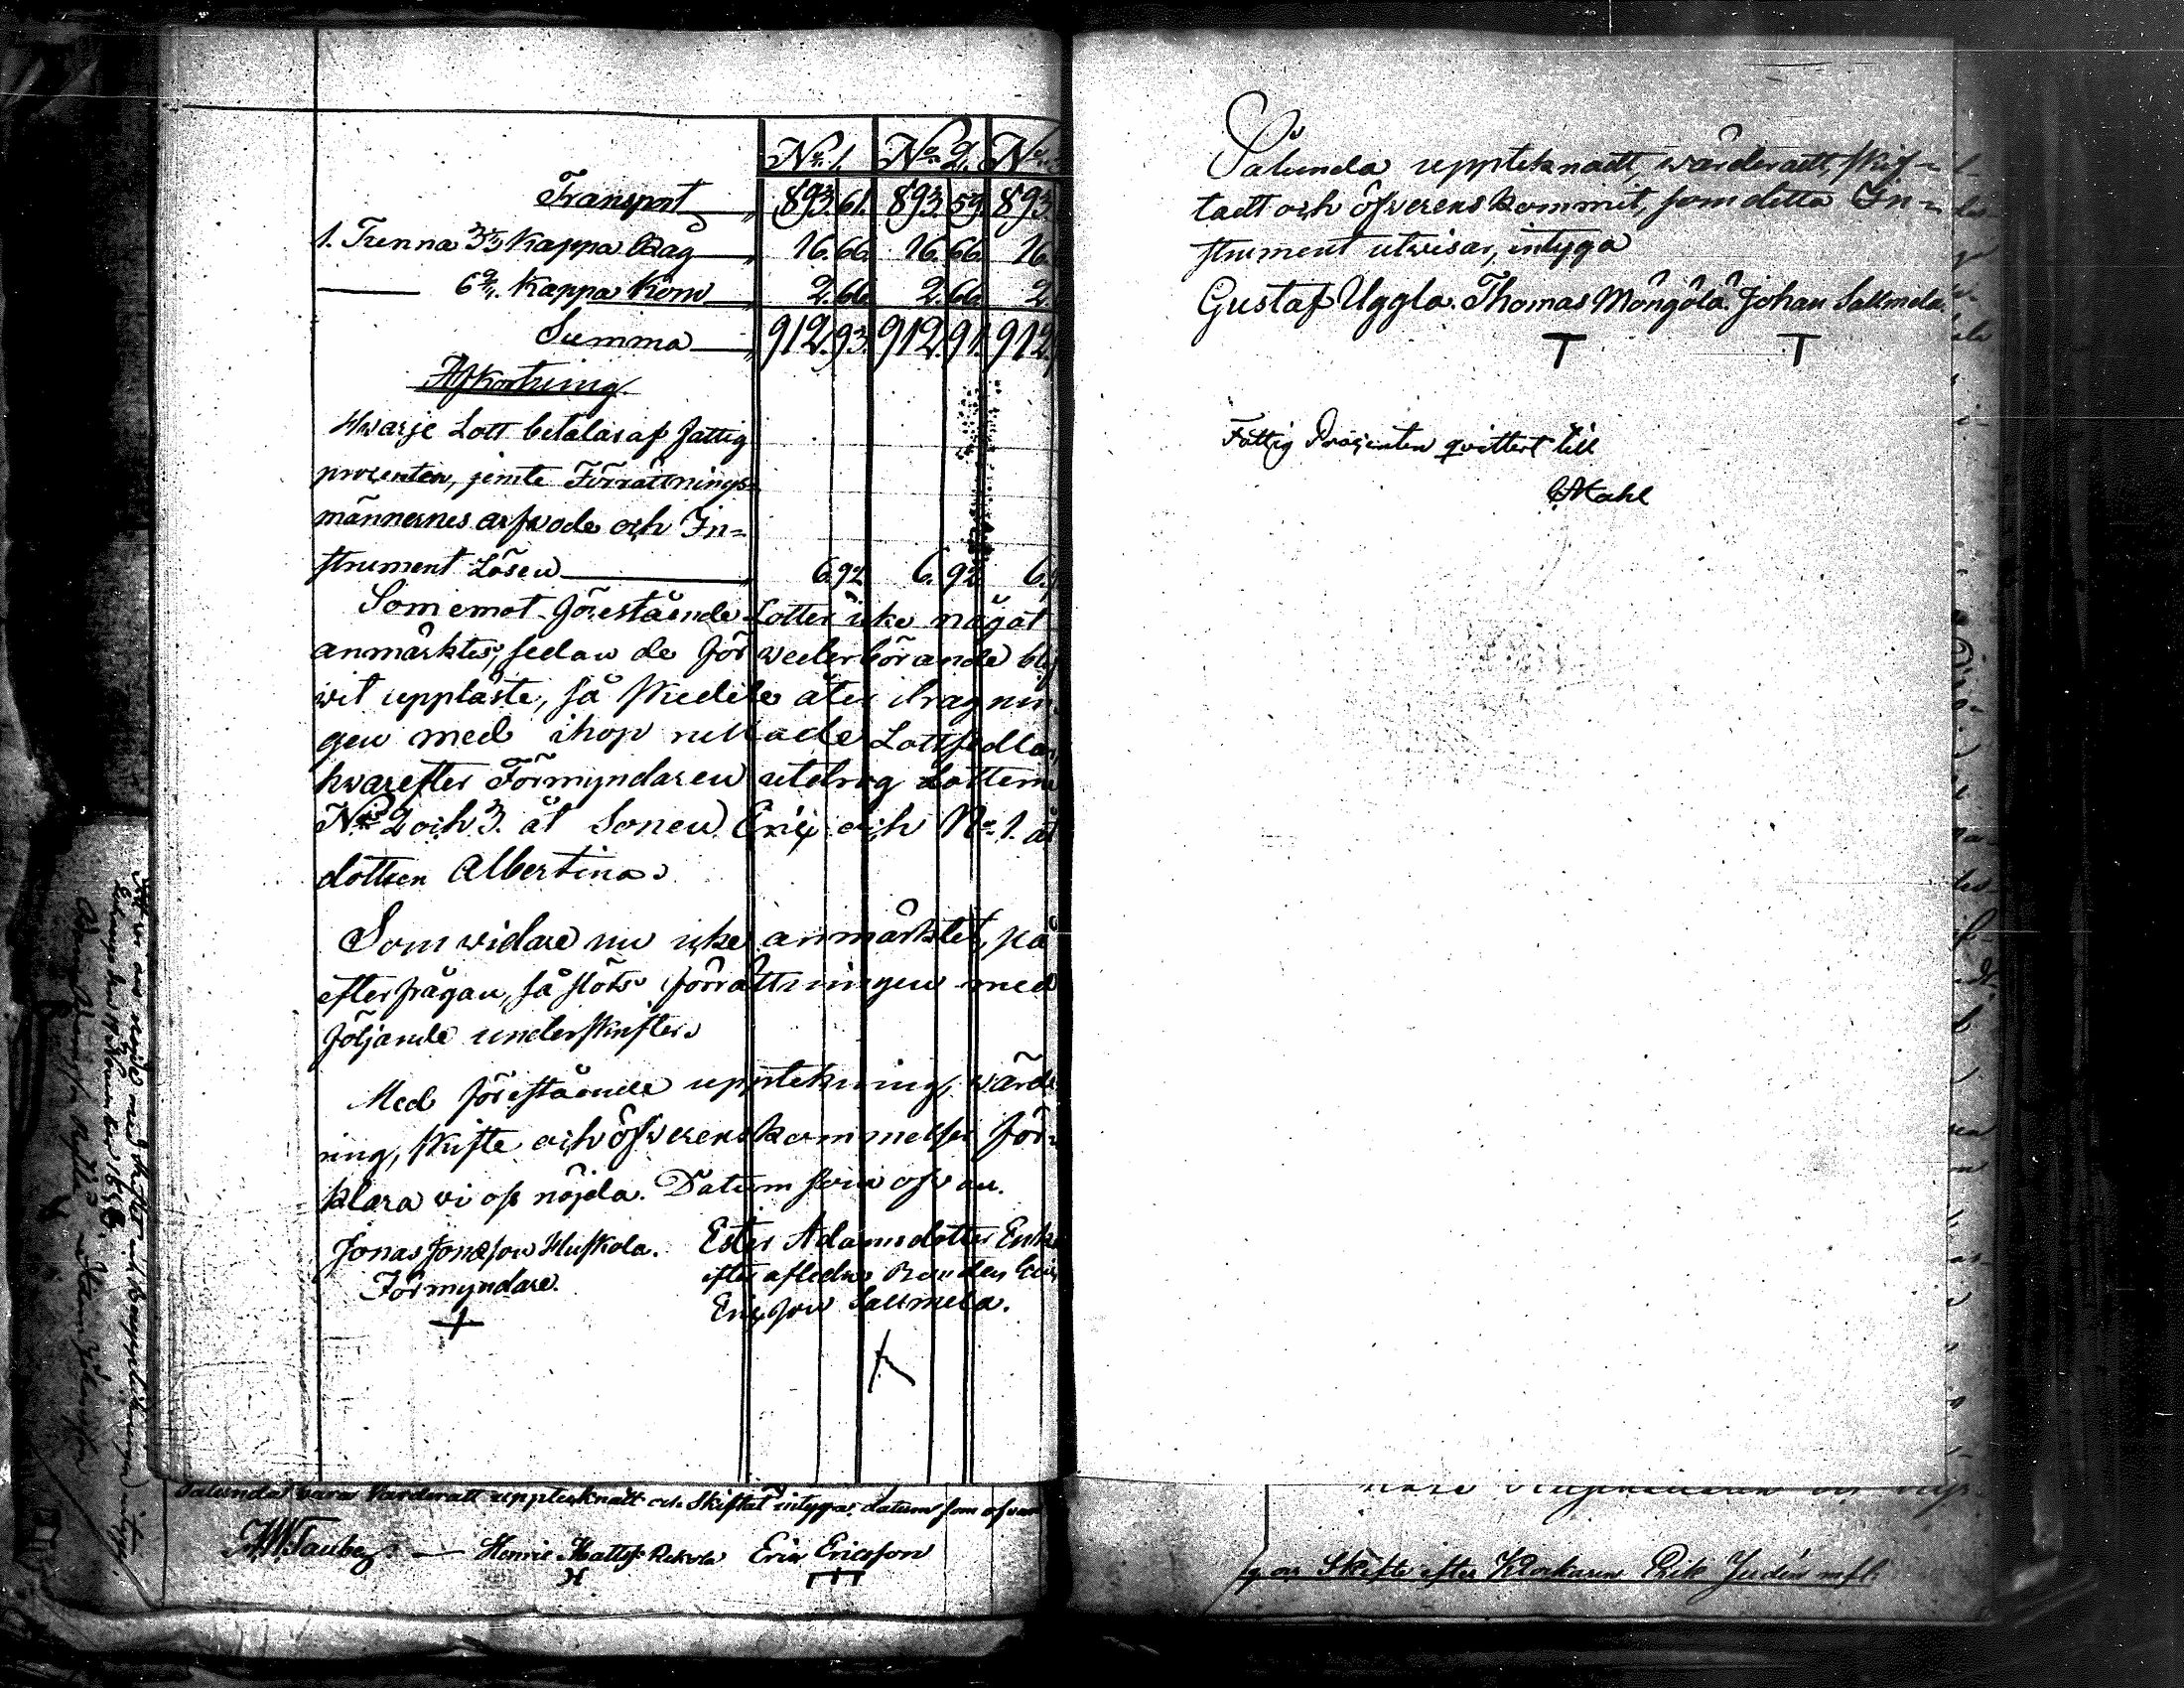 No. 1. No. 2. No.
Transport 893. 61. 893. 59. 893.
1. Tunna 3 Kappa Råg 16. 66. 16. 66. 16.
6 Kappa Korn 2. 66. 2. 66. 2.
Summa 912. 93. 912. 91. 912.
Afkortning
Hwarje Lott betalar af fattig
procenten, jemte Förrättnings-
männernes arfvode och In-
strument Lösen 6. 92 6. 92 6.
Som emot förestående Lotter icke något
anmärktes, sedan de för wederbörande blif
wit uppläste, så skedde åter dragnin
gen med ihop rullade Lottsedlar
hwarefter Förmyndaren utdrog Lotterne
No 2 och 3. åt Sonen Eric och No 1. åt
dottren Albertina.
Som widare nu icke anmärktes, på
efterfrågan, så slöts förrättningen med
följande underskrifter.
Med förestående uppteckning, wärde
ring, skifte och öfverenskommelse för-
klara wi oss nöjda. Datum som ofvan.
Jonas Jonasson Huskola. Ester Adamsdotter Enka
Förmyndare. efter aflidne Bonden Eric
Ericsson Sallmela.
Sålunda vara Värderatt upptecknatt och Skiftat intygar datum som ofvan
Henric Mattss. Rekola Eric Ericsson
Sålunda upptecknadt, wärderadt, skif-
tadt och öfverenskommit, som detta In-
strument utwisar, intyga
Gustaf Uggla. Thomas Möngölä. Johan Sallmela.
Fattig Procenten qvittert till
Mahl
Skifte efter Klockaren Erik Judén